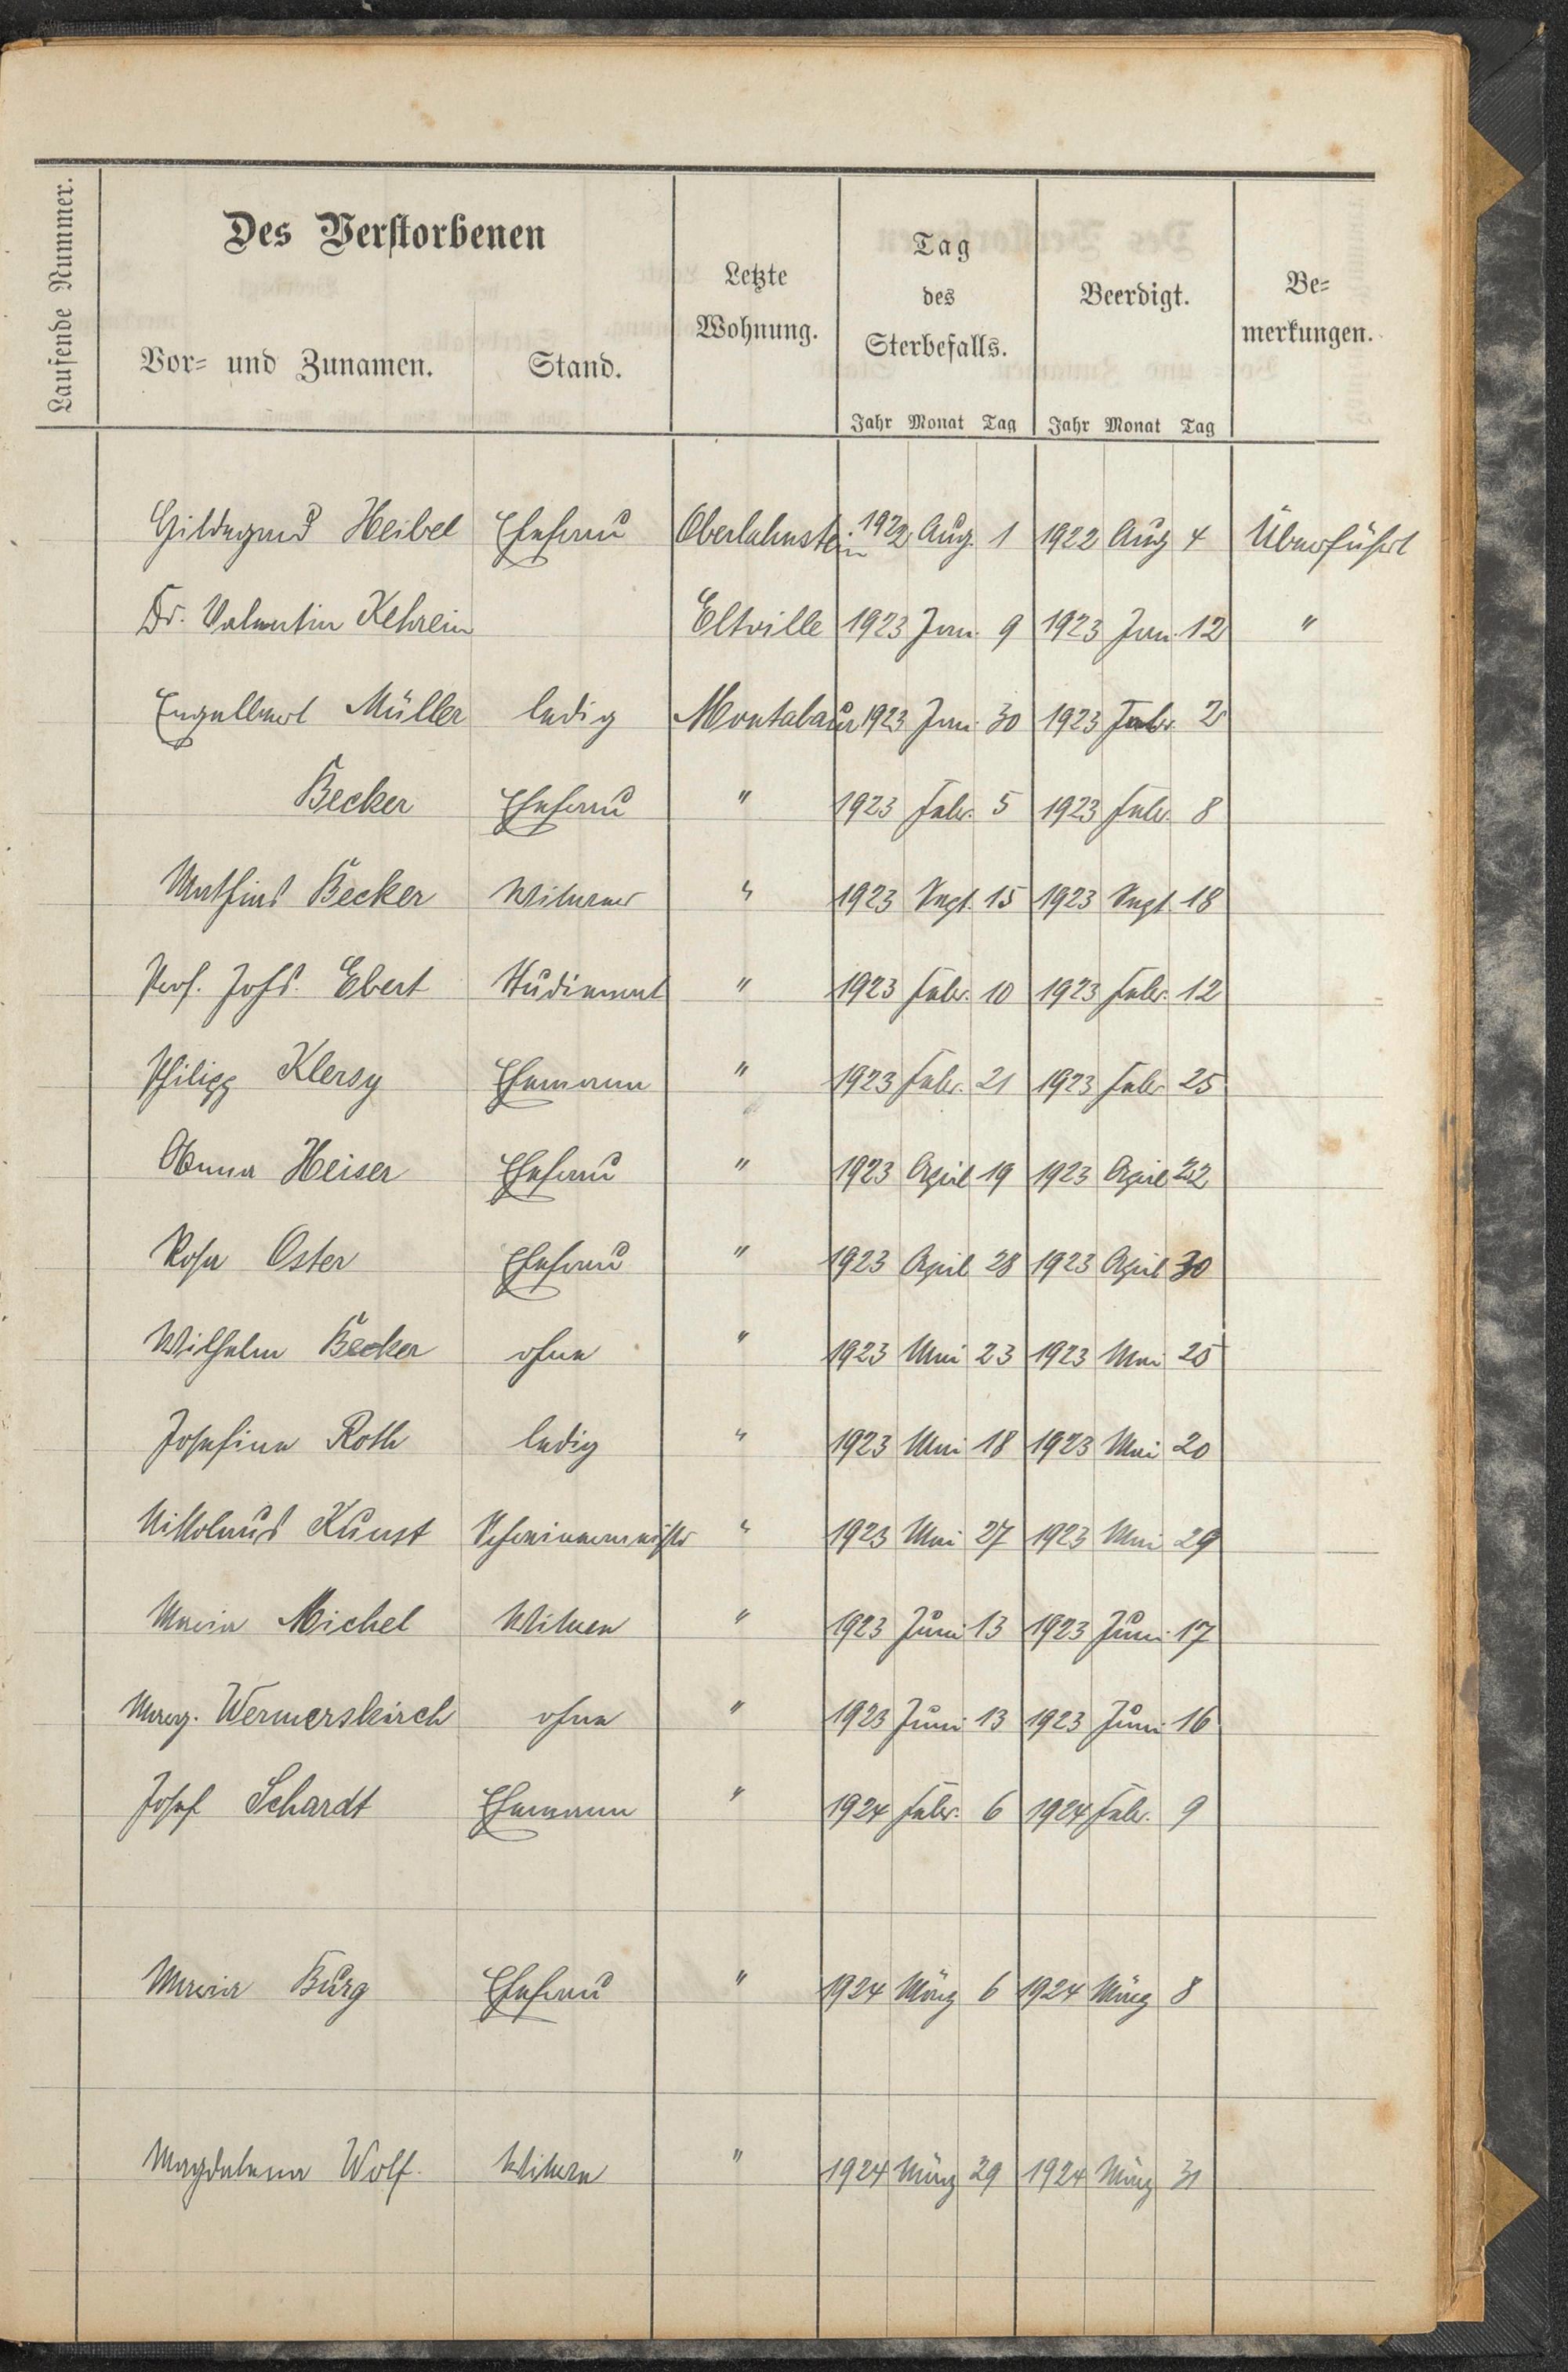 Laufende Nummer.
Des Verstorbenen
Vor- und Zunamen.
Stand.
Letzte
Wohnung.
Tag
des
Sterbefalls.
Jahr Monat Tag
Beerdigt.
Jahr Monat Tag
Be-
merkungen.
Hildegard Heibel Ehefrau Oberlahnstein 1922 Aug. 1 1922 Aug 4 Überführt
Dr. Valentin Kehrein Eltville 1923 Jan. 9 1923 Jan. 12 "
Engelbert Müller ledig Montabaur 1923 Jan. 30 1923 Febr. 2
Becker Ehefrau " 1923 Febr. 5 1923 Febr. 8
Mathias Becker Witwer " 1923 Sept. 15 1923 Sept. 18
Prof. Johs. Ebert Studienrat " 1923 Febr. 10 1923 Febr. 12
Philipp Klersy Ehemann " 1923 Febr. 21 1923 Febr 25
Anna Heiser Ehefrau " 1923 April 19 1923 April 22
Rosa Oster Ehefrau " 1923 April 28 1923 April 30
Wilhelm Becker ohne " 1923 Mai 23 1923 Mai 25
Josefine Roth ledig " 1923 Mai 18 1923 Mai 20
Nikolaus Kunst Schreinermeister " 1923 Mai 27 1923 Mai 29
Maria Michel Witwe " 1923 Juni 13 1923 Juni 17
Marg. Wermerskirch ohne " 1923 Juni 13 1923 Juni 16
Josef Schardt Ehemann " 1924 Febr. 6 1924 Febr. 9
Maria Burg Ehefrau " 1924 März 6 1924 März 8
Magdalena Wolf. Witwe " 1924 März 29 1924 März 31